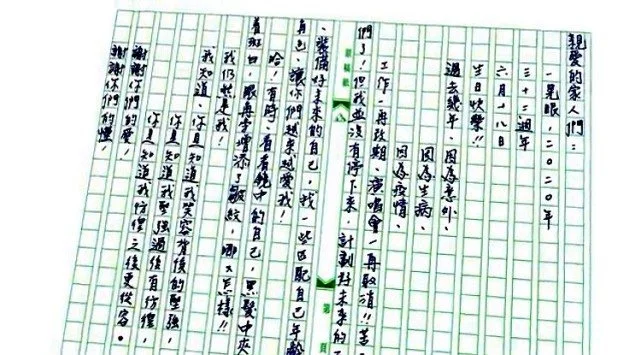 親愛的家人們：
一晃眼，二〇二〇年
三十二週年
六月十八日
生日快樂!!
過去幾年、因為意外、
因為生病、
因為疫情、
工作一再改期、演唱會一再取消!!苦
們了！但我並沒有停下來，計劃好未來的
、裝備好未來的自己，我一些匹配自己年齡
自己、讓你們越來越愛我！
哈！有時、看看鏡中的自己，黑髮中夾
著斑白，眼角增添了皺紋，哪又怎樣!!
我仍然是我！
我知道、你真知道我笑容背後的堅強，
你真知道我堅強過後有彷徨，
你真知道我彷徨之後更從容。
謝謝你們的愛！
謝謝你們的懂！